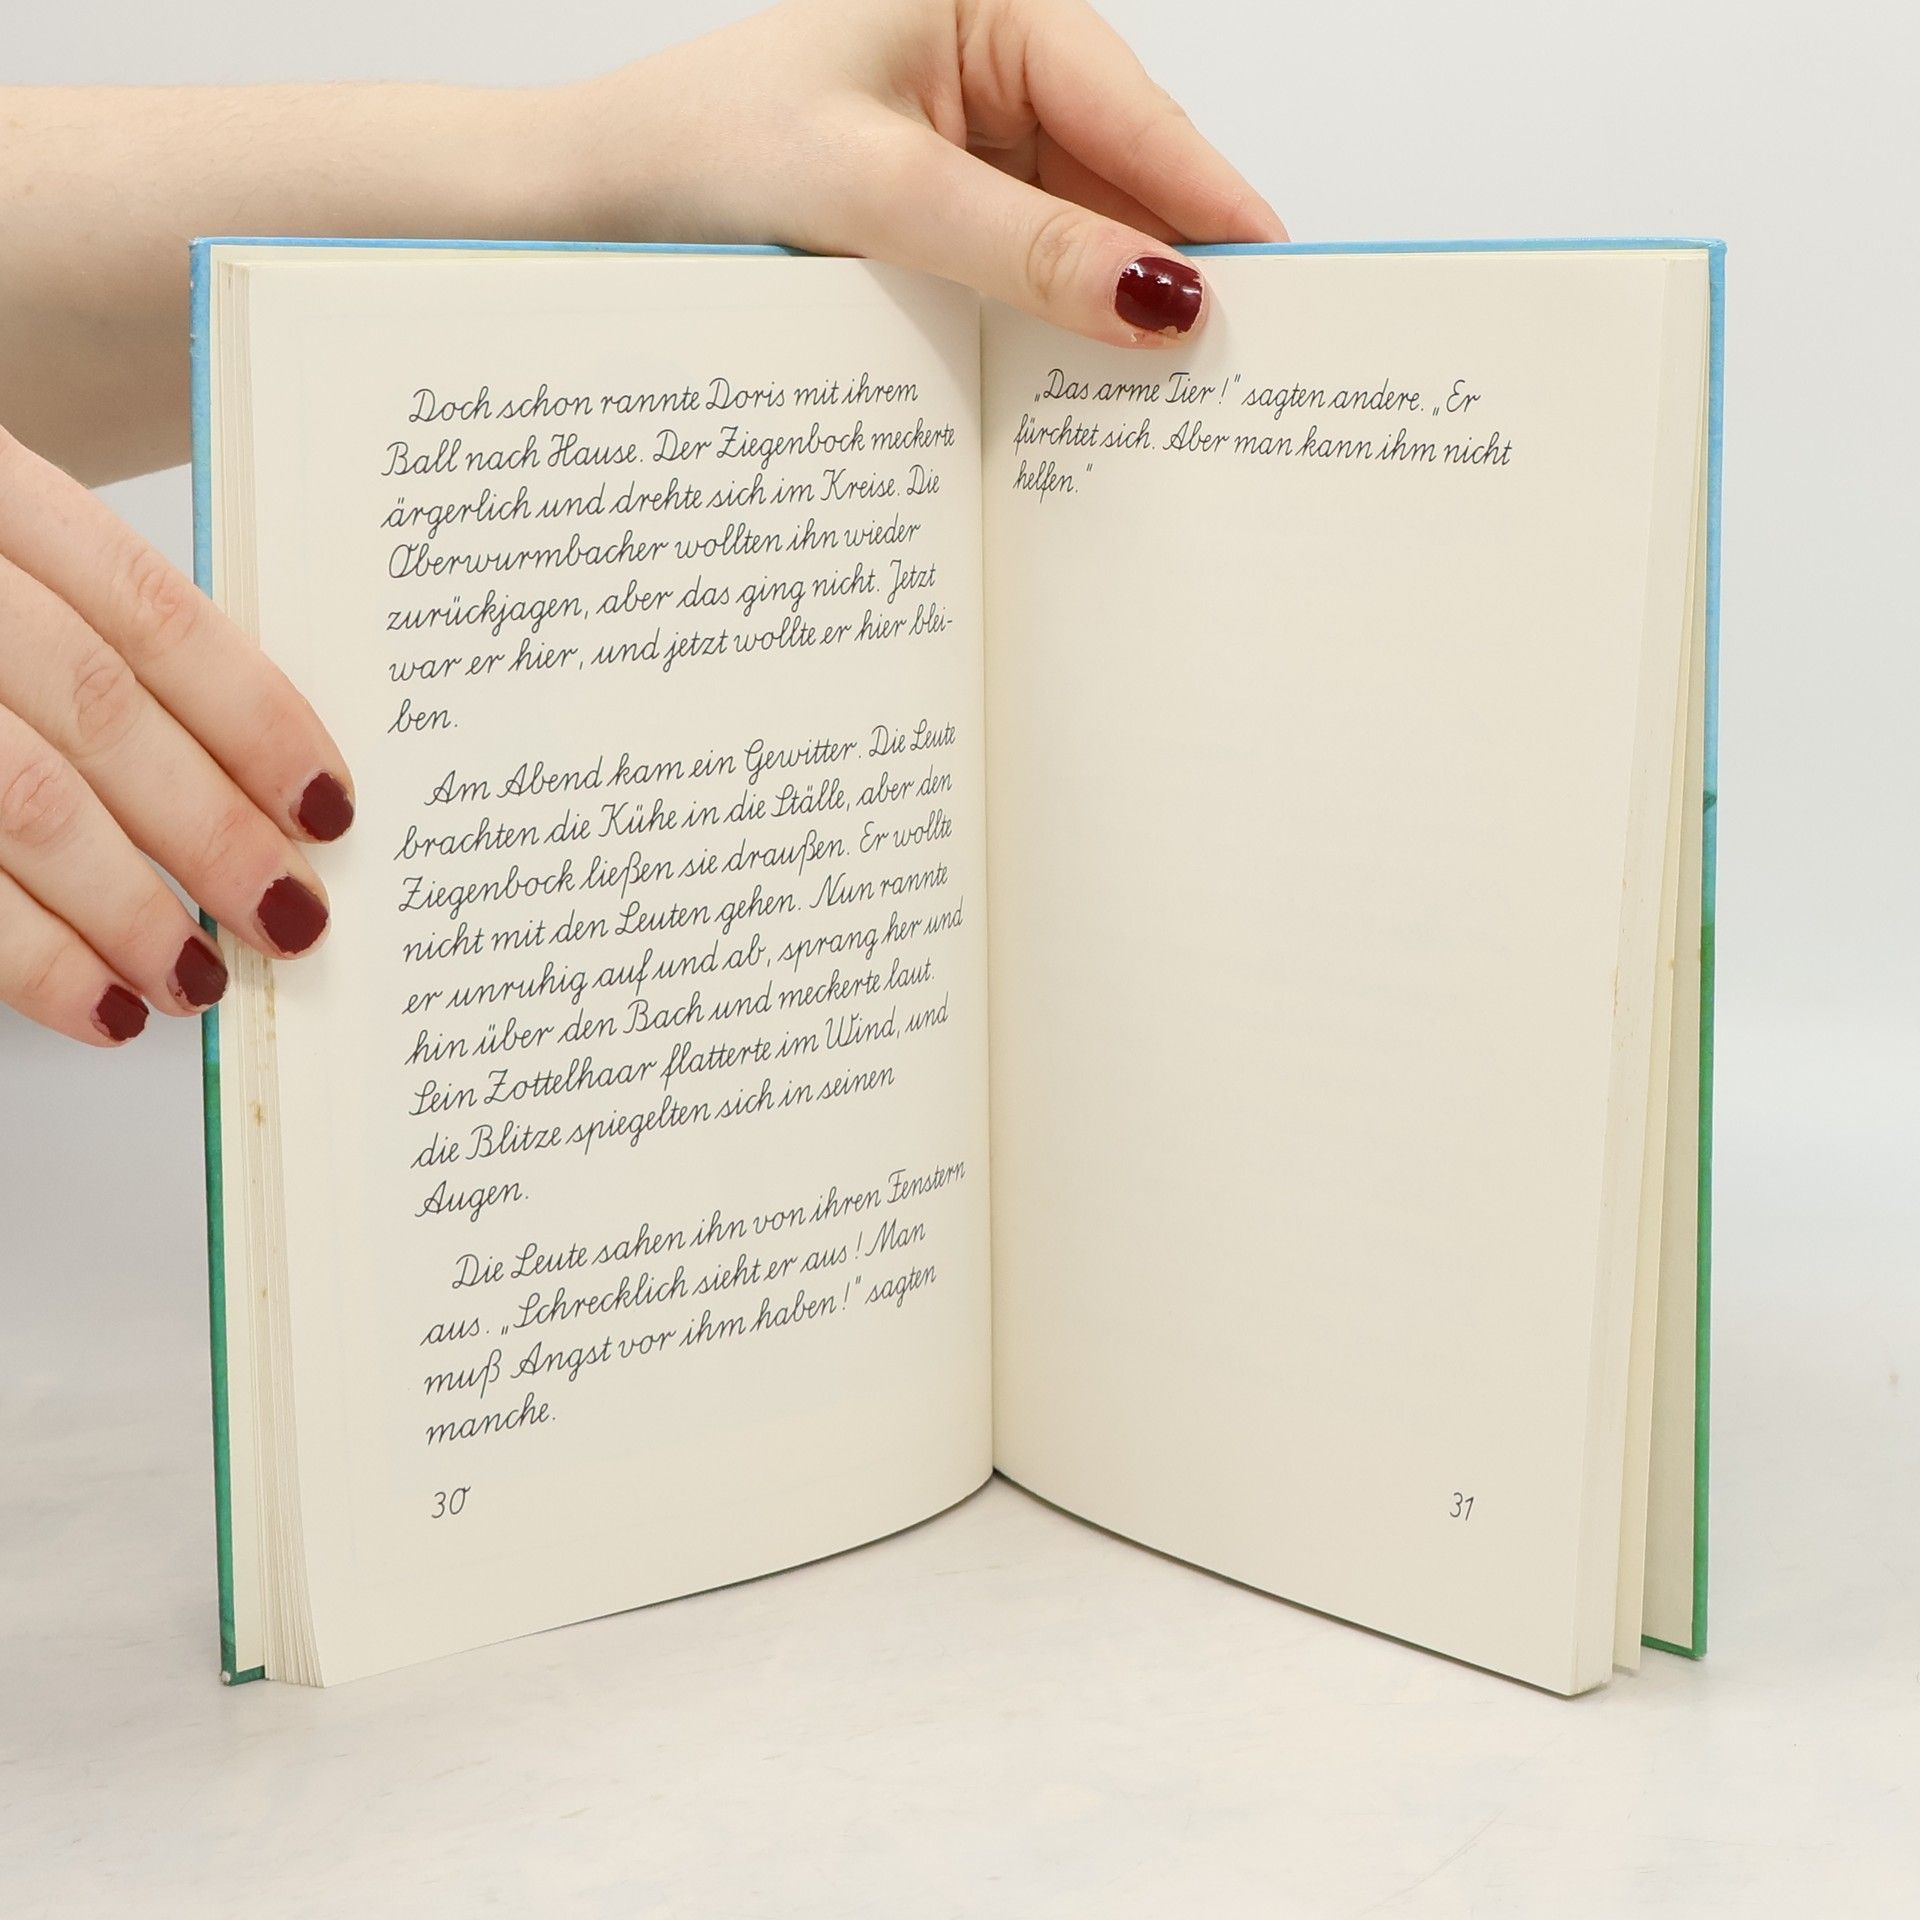 Doch schon rannte Doris mit ihrem
Ball nach Hause. Der Ziegenbock meckerte
ärgerlich und drehte sich im Kreise. Die
Oberwurmbacher wollten ihn wieder
zurückjagen, aber das ging nicht. Jetzt
war er hier, und jetzt wollte er hier blei-
ben.
Am Abend kam ein Gewitter. Die Leute
brachten die Kühe in die Ställe, aber den
Ziegenbock ließen sie draußen. Er wollte
nicht mit den Leuten gehen. Nun rannte
er unruhig auf und ab, sprang her und
hin über den Bach und meckerte laut.
Sein Zottelhaar flatterte im Wind, und
die Blitze spiegelten sich in seinen
Augen.
Die Leute sahen ihn von ihren Fenstern
aus. „Schrecklich sieht er aus! Man
muß Angst vor ihm haben!" sagten
manche.
30
„Das arme Tier!" sagten andere. „Er
fürchtet sich. Aber man kann ihm nicht
helfen."
31